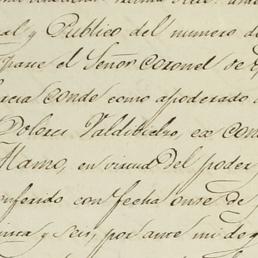 al y Publico del numero d
parece el Señor Coronel de
cia Conde como apoderado
Dolores Valdivielso, ex Con
Alamo, en virtud del poder
onferido con fecha onse de
enta y seis, por ante mi de